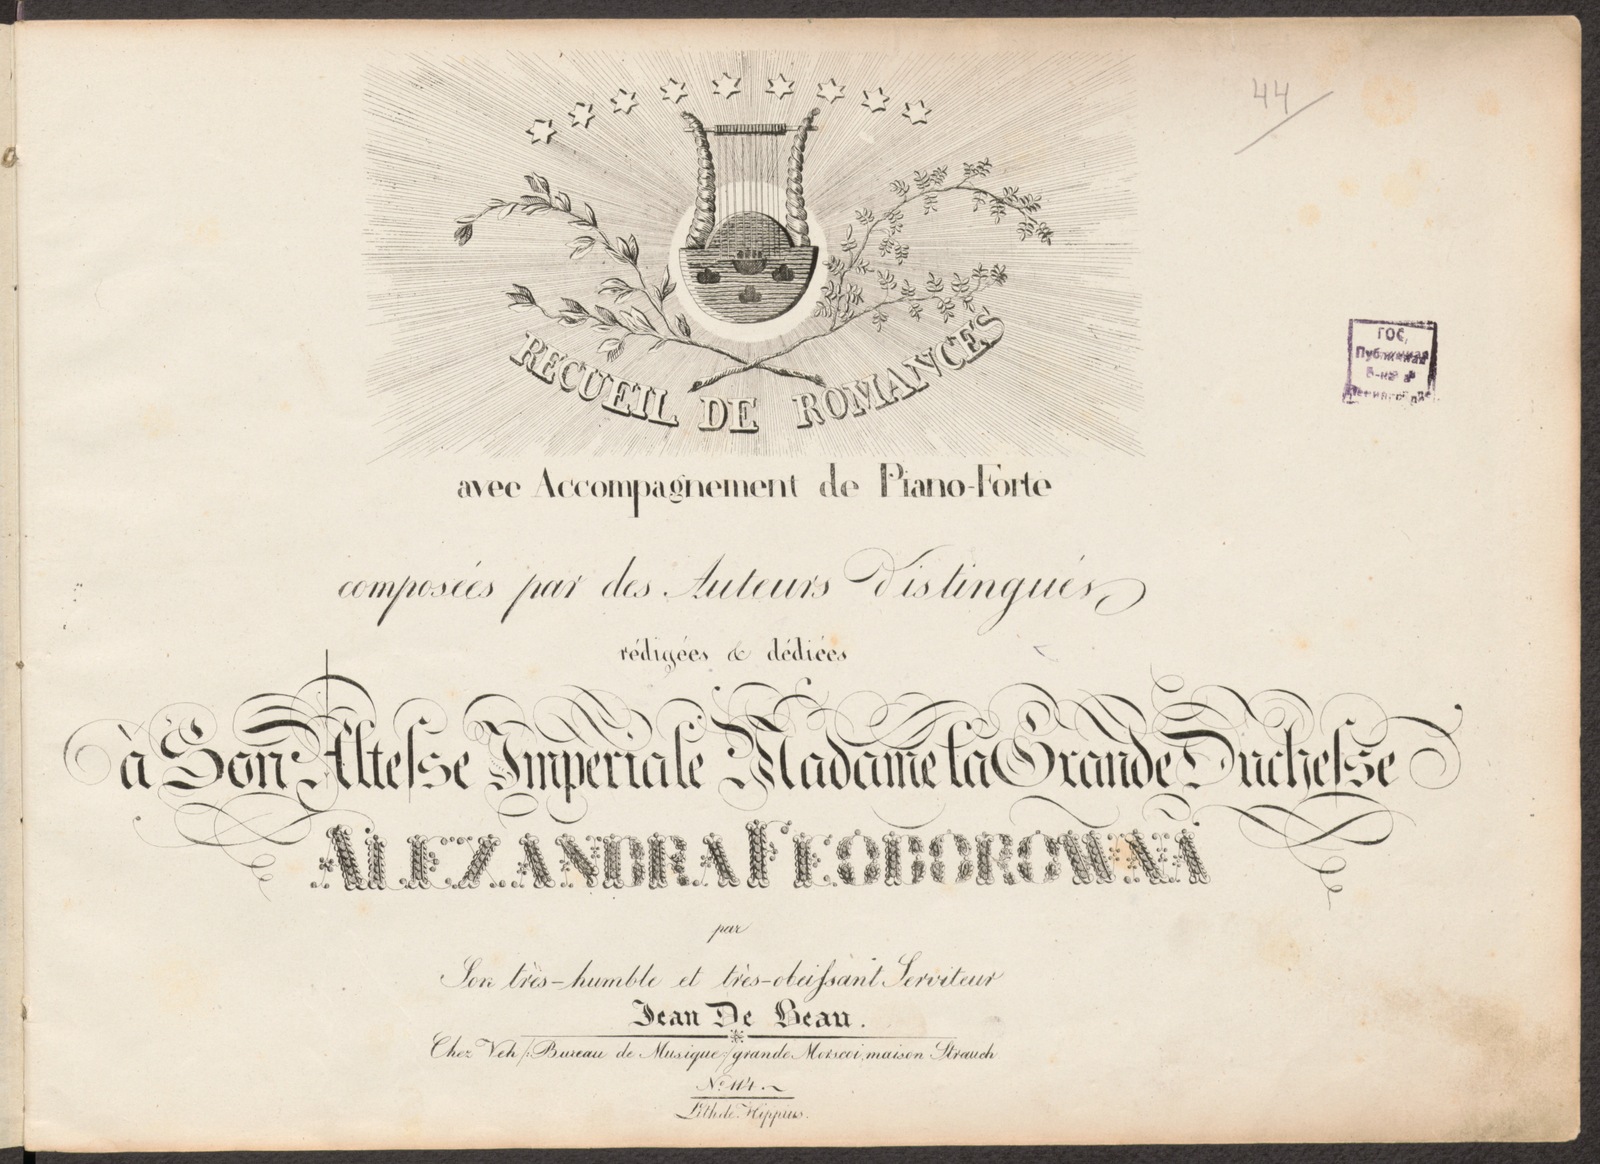 44
RECUEIL DE ROMANCES
ГОС.
Публичная
Б-ка в
Ленинграде
avec Accompagnement de Piano-Forte
composées par des Auteurs Distingués
rédigées & dédiées
à Son Altesse Imperiale Madame la Grande Duchesse
ALEXANDRA FEODOROWNA
par
Son très-humble et très-obeissant Serviteur
Jean De Beau.
Chez Veh /: Bureau de Musique :/ grande Morscoi, maison Strauch
No 114.
Lith de Hippius.